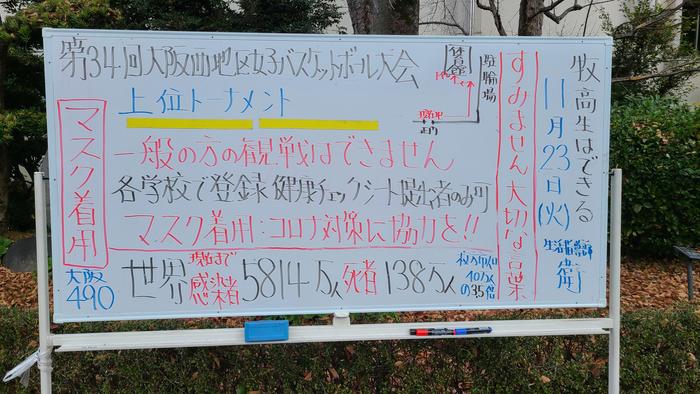 牧高生はできる
11月23日(火)
衛
すみません 大切な言葉
第34回大阪西地区女子バスケットボール大会
上位トーナメント
体育館
駐輪場
正門
一般の方の観戦はできません
各学校で登録 健康チェックシート提出者のみ可
マスク着用:コロナ対策に協力を!!
マスク着用
大阪
490
世界 現在まで 感染者 5814万人 死者 138万人
の3.5倍